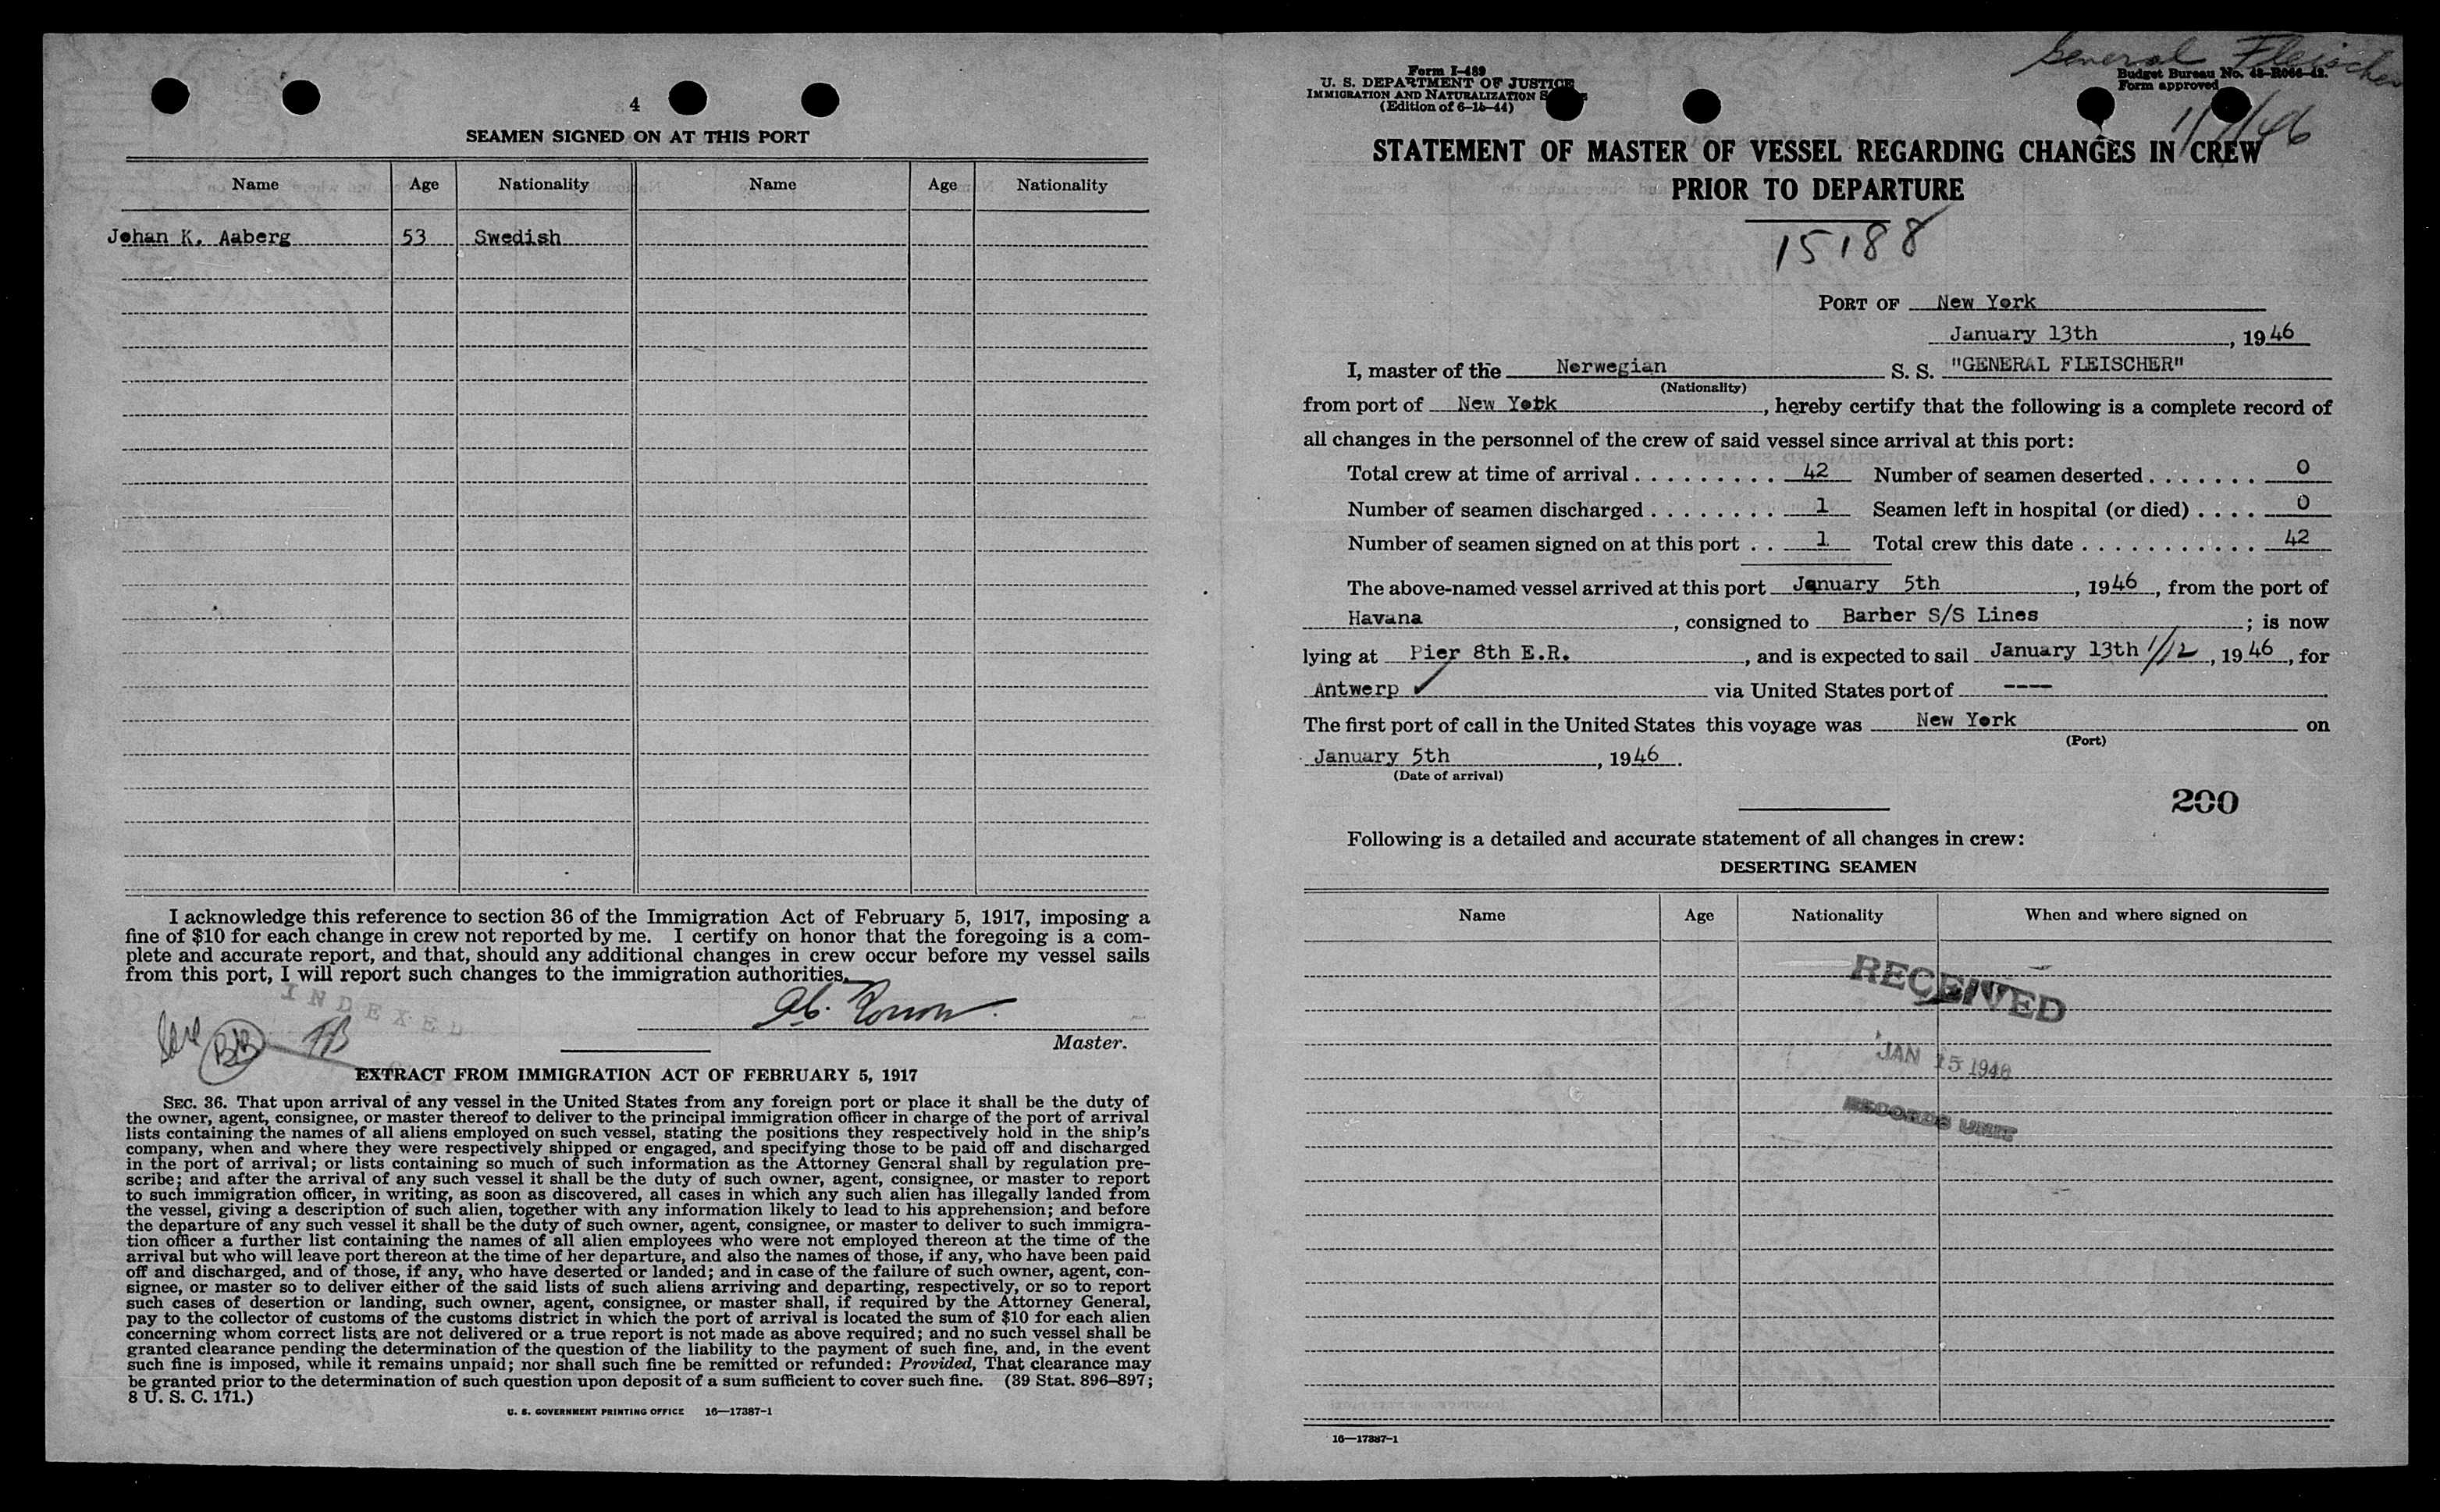 4
SEAMEN SIGNED ON AT THIS PORT
Name Age Nationality Name Age Nationality
Johan K. Aaberg 53 Swedish
I acknowledge this reference to section 36 of the Immigration Act of February 5, 1917, imposing a
fine of $10 for each change in crew not reported by me. I certify on honor that the foregoing is a com-
plete and accurate report, and that, should any additional changes in crew occur before my vessel sails
from this port, I will report such changes to the immigration authorities.
INDEXED
BB
Master.
EXTRACT FROM IMMIGRATION ACT OF FEBRUARY 5, 1917
SEC. 36. That upon arrival of any vessel in the United States from any foreign port or place it shall be the duty of
the owner, agent, consignee, or master thereof to deliver to the principal immigration officer in charge of the port of arrival
lists containing the names of all aliens employed on such vessel, stating the positions they respectively hold in the ship's
company, when and where they were respectively shipped or engaged, and specifying those to be paid off and discharged
in the port of arrival; or lists containing so much of such information as the Attorney General shall by regulation pre-
scribe; and after the arrival of any such vessel it shall be the duty of such owner, agent, consignee, or master to report
to such immigration officer, in writing, as soon as discovered, all cases in which any such alien has illegally landed from
the vessel, giving a description of such alien, together with any information likely to lead to his apprehension; and before
the departure of any such vessel it shall be the duty of such owner, agent, consignee, or master to deliver to such immigra-
tion officer a further list containing the names of all alien employees who were not employed thereon at the time of the
arrival but who will leave port thereon at the time of her departure, and also the names of those, if any, who have been paid
off and discharged, and of those, if any, who have deserted or landed; and in case of the failure of such owner, agent, con-
signee, or master so to deliver either of the said lists of such aliens arriving and departing, respectively, or so to report
such cases of desertion or landing, such owner, agent, consignee, or master shall, if required by the Attorney General,
pay to the collector of customs of the customs district in which the port of arrival is located the sum of $10 for each alien
concerning whom correct lists are not delivered or a true report is not made as above required; and no such vessel shall be
granted clearance pending the determination of the question of the liability to the payment of such fine, and, in the event
such fine is imposed, while it remains unpaid; nor shall such fine be remitted or refunded: Provided, That clearance may
be granted prior to the determination of such question upon deposit of a sum sufficient to cover such fine. (39 Stat. 896–897;
8 U. S. C. 171.)
U. S. GOVERNMENT PRINTING OFFICE 16—17387-1
General Fleischer
Form I-489
U. S. DEPARTMENT OF JUSTICE
IMMIGRATION AND NATURALIZATION
(Edition of 6-15-44)
Budget Bureau No. 43-R066-42.
Form approved
STATEMENT OF MASTER OF VESSEL REGARDING CHANGES IN CREW
PRIOR TO DEPARTURE
15188
PORT OF New York
January 13th, 1946
I, master of the Norwegian S. S. "GENERAL FLEISCHER"
(Nationality)
from port of New York, hereby certify that the following is a complete record of
all changes in the personnel of the crew of said vessel since arrival at this port:
Total crew at time of arrival . . . . . . . . . 42 Number of seamen deserted . . . . . . . 0
Number of seamen discharged . . . . . . . . 1 Seamen left in hospital (or died) . . . . 0
Number of seamen signed on at this port . . 1 Total crew this date . . . . . . . . . . . 42
The above-named vessel arrived at this port January 5th, 1946, from the port of
Havana, consigned to Barber S/S Lines; is now
lying at Pier 8th E.R., and is expected to sail January 13th 1/12, 1946, for
Antwerp ✓ via United States port of ----
The first port of call in the United States this voyage was New York on
(Port)
January 5th, 1946.
(Date of arrival)
200
Following is a detailed and accurate statement of all changes in crew:
DESERTING SEAMEN
Name Age Nationality When and where signed on
RECEIVED
JAN 15 1946
RECORDS UNIT
16—17387-1